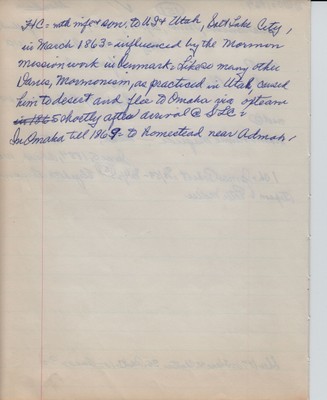 HC = with inf + son. to US + Utah, Salt Lake City,
in March 1863 = influenced by the Mormon
mission work in Denmark = Like so many other
Danes, Mormonism, as practised in Utah, caused
them to desert and flee to Omaha via
in 1865 shortly after arrival @ SLC =
In Omaha till 1869 = to homestead near Admah,